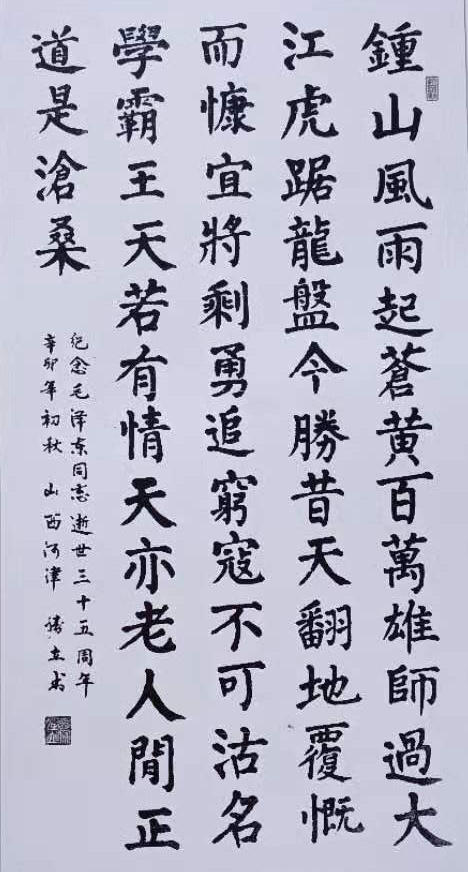 鍾山風雨起蒼黄百萬雄師過大
江虎踞龍盤今勝昔天翻地覆慨
而慷宜將剩勇追窮寇不可沽名
學霸王天若有情天亦老人閒正
道是滄桑
纪念毛泽东同志逝世三十五周年
辛卯年初秋 山西河津 立书